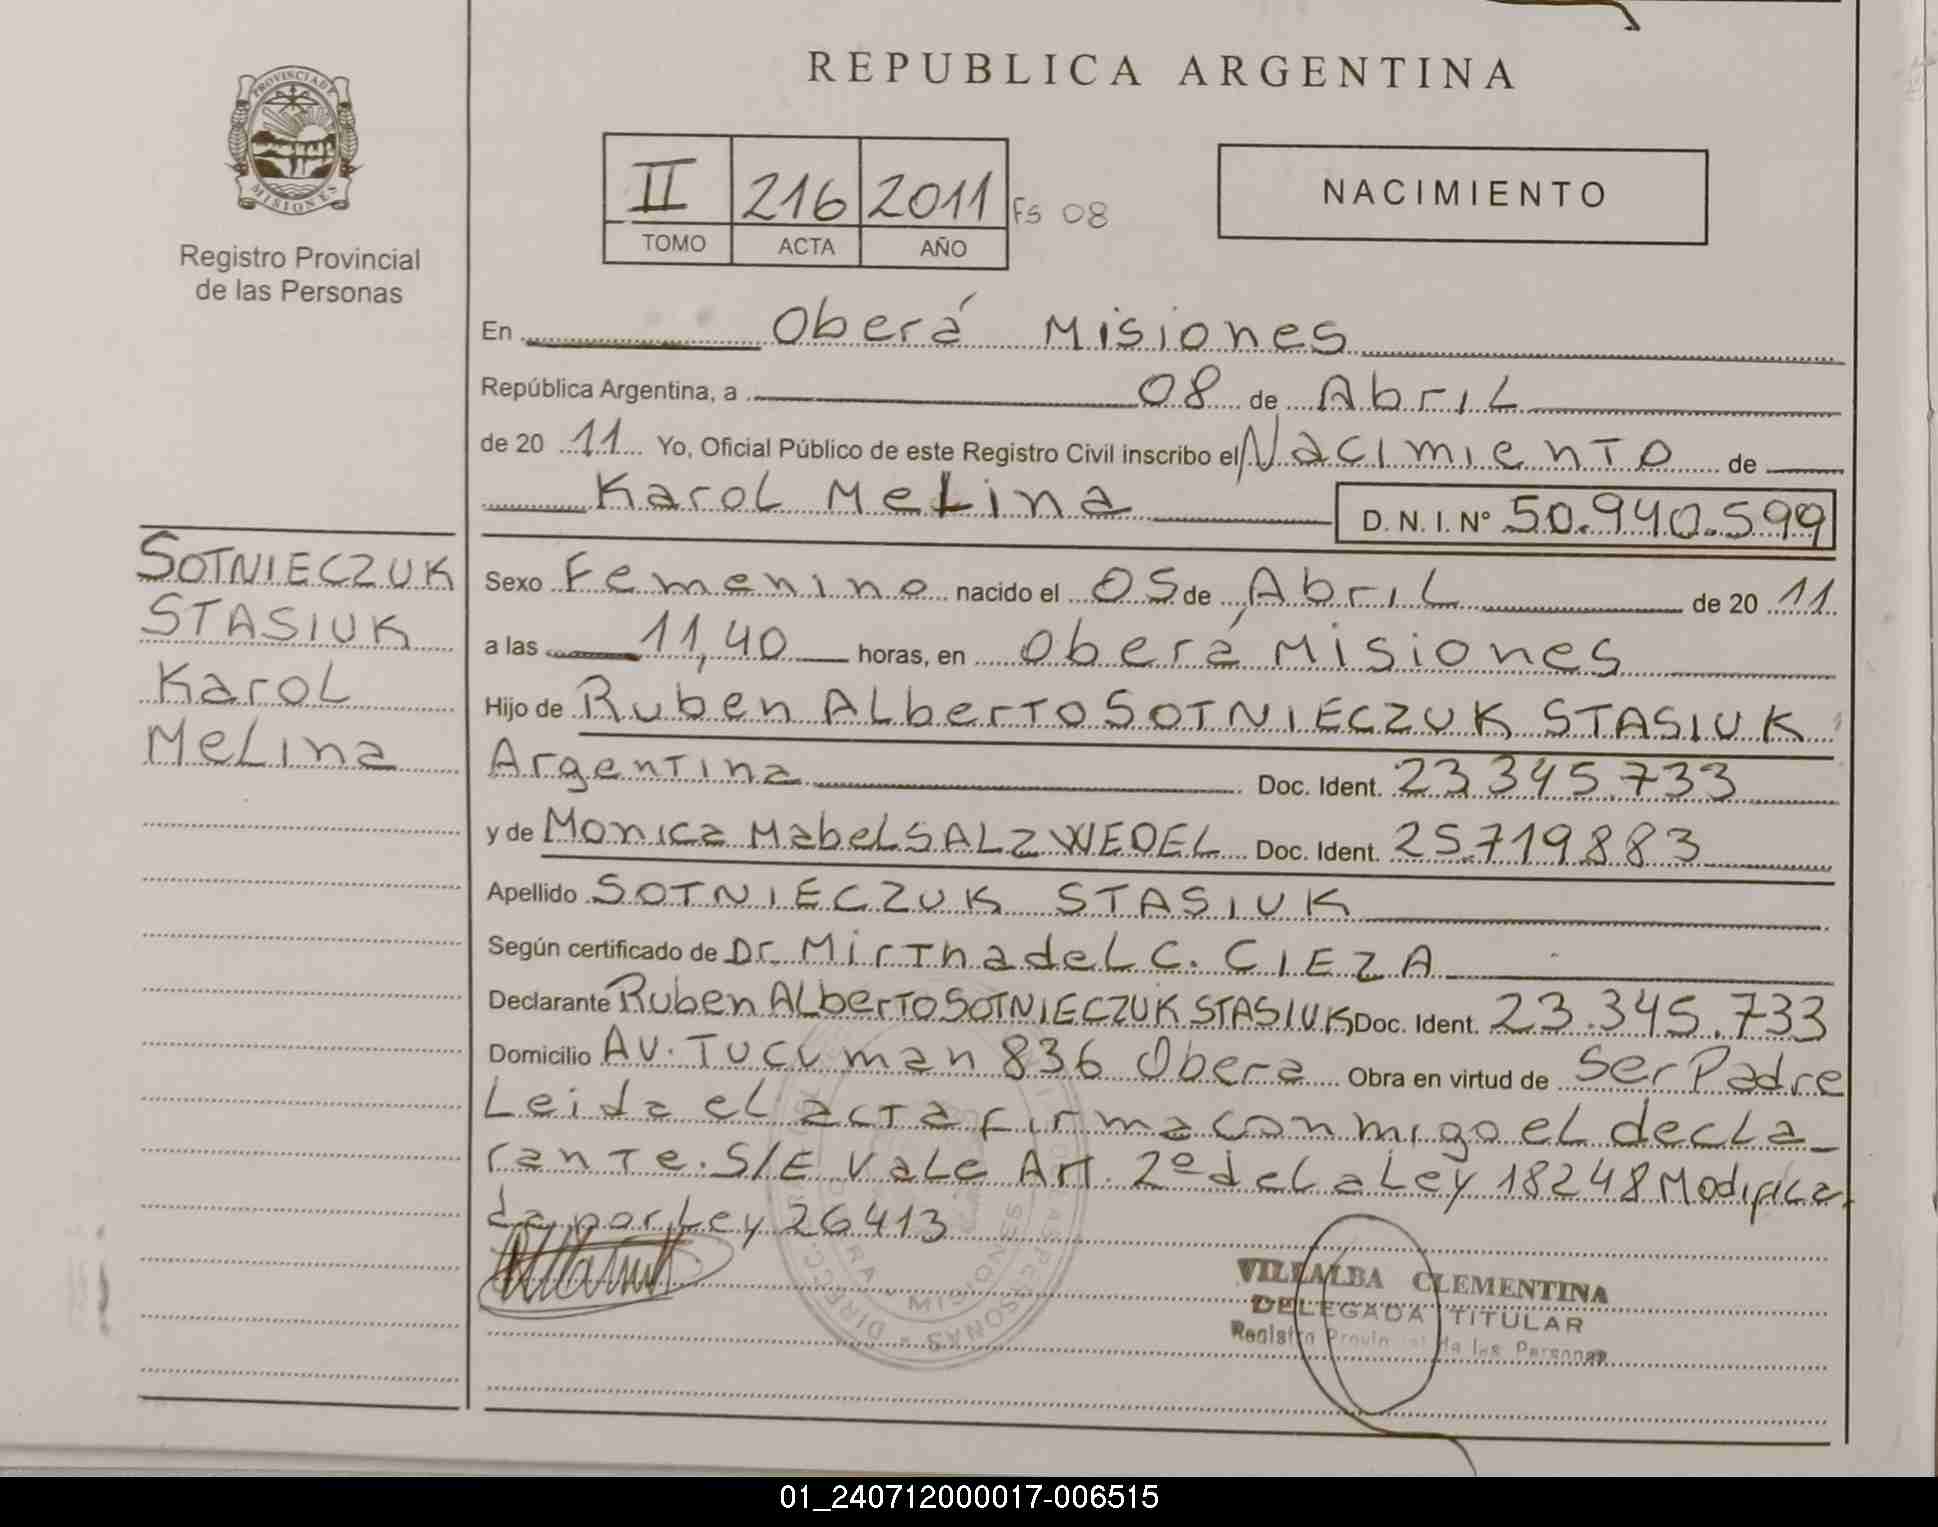 REPUBLICA ARGENTINA
PROVINCIA DE
MISIONES
Registro Provincial
de las Personas
II 216 2011 FS 08
TOMO ACTA AÑO
NACIMIENTO
En Oberá Misiones
República Argentina, a 08 de Abril
de 20 11 Yo, Oficial Público de este Registro Civil inscribo el Nacimiento de
Karol Melina D. N. I. Nº 50.940.599
SOTNIECZUK
STASIUK
Karol
Melina
Sexo Femenino nacido el 05 de Abril de 20 11
a las 11,40 horas, en Oberá Misiones
Hijo de Ruben Alberto SOTNIECZUK STASIUK
Argentina Doc. Ident. 23.345.733
y de Monica Mabel SALZWEDEL Doc. Ident. 25.719.883
Apellido SOTNIECZUK STASIUK
Según certificado de Dr. Mirtha del C. CIEZA
Declarante Ruben Alberto SOTNIECZUK STASIUK Doc. Ident. 23.345.733
Domicilio AV. Tucuman 836 Obera Obra en virtud de Ser Padre
Leida el acta firma conmigo el decla
rante. S/E Vale Art. 2º de la Ley 18248 Modifica
da por Ley 26413
VILLALBA CLEMENTINA
DELEGADA TITULAR
Registro Provincial de las Personas
01_240712000017-006515